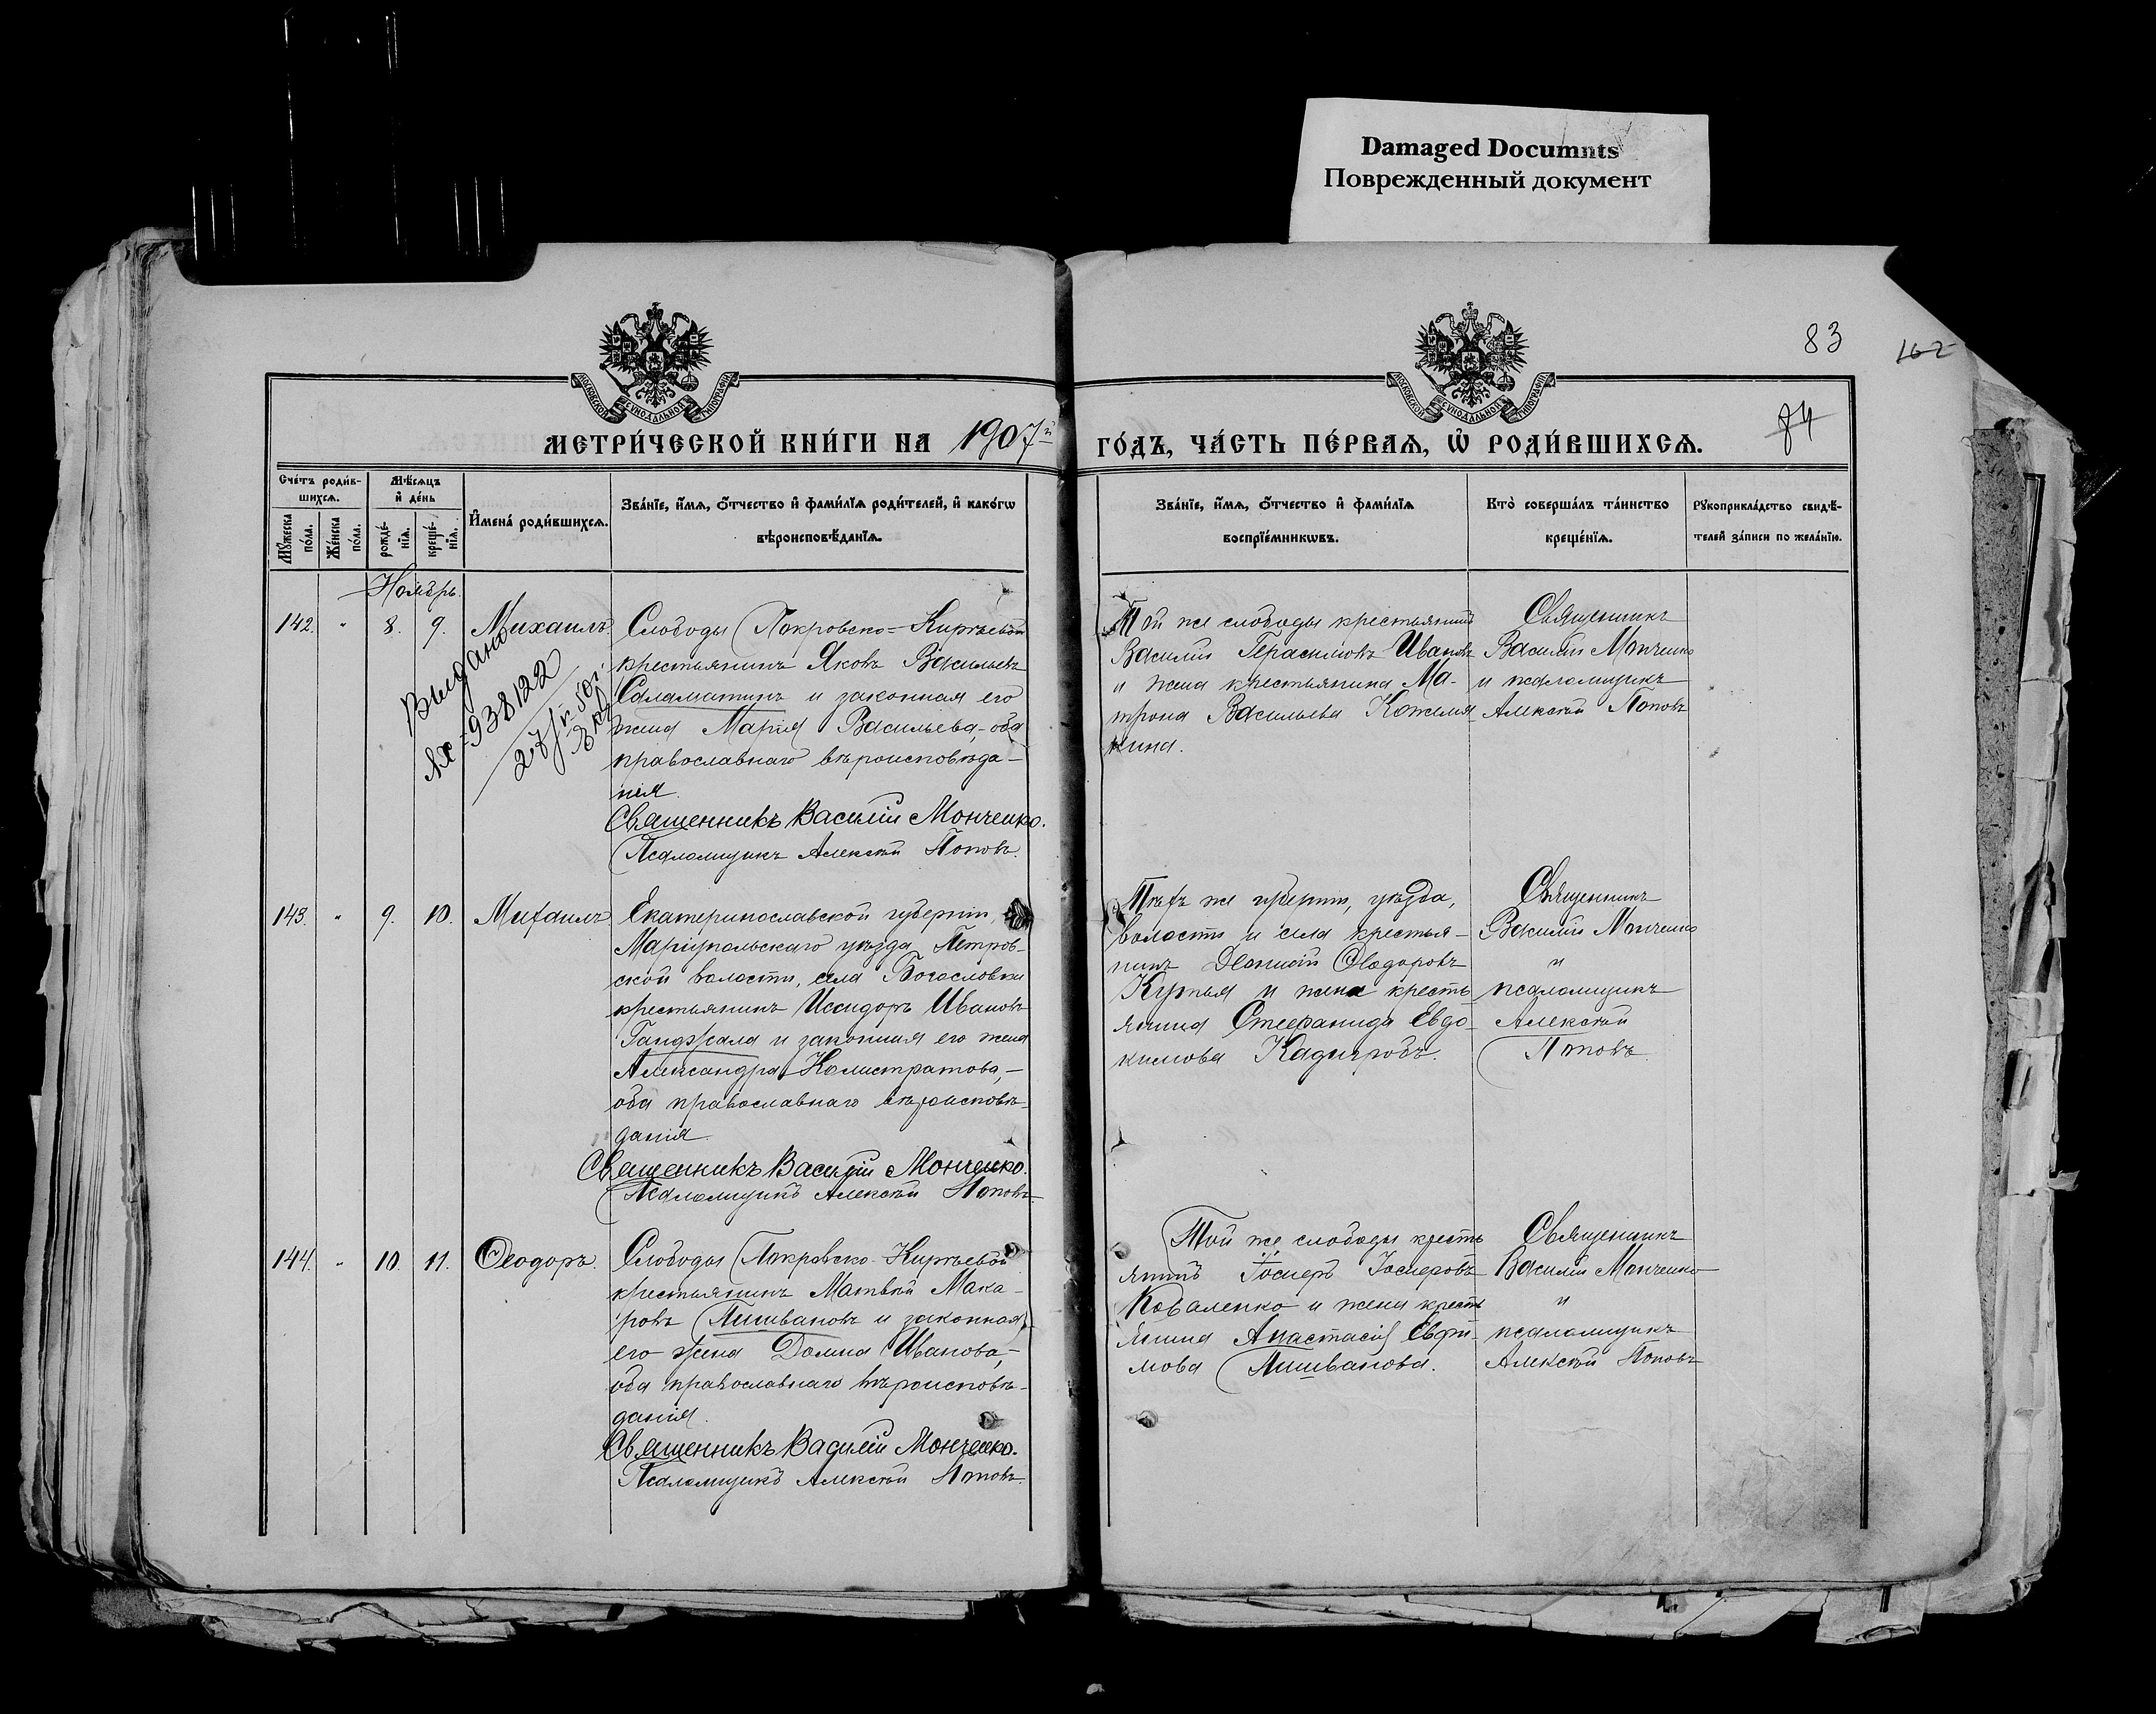 Damaged Documnts
Поврежденный документ
83
162
84
МОСКОВСКОЙ СѴНОДАЛЬНОЙ ТИПОГРАФІИ
МОСКОВСКОЙ СѴНОДАЛЬНОЙ ТИПОГРАФІИ
МЕТРИ́ЧЕСКОЙ КНИ́ГИ НА 1907й
ГО́ДЪ, ЧА́СТЬ ПЕ́РВАѦ, Ѡ҆ РОДИ́ВШИХСѦ.
Сче́тъ роди́в-
шихсѧ.
Мꙋ́жеска
по́ла.
Же́нска
по́ла.
Мѣ́сѧцъ
и҆ де́нь
рожде́-
нїѧ.
креще́-
нїѧ.
И҆мена̀ роди́вшихсѧ.
Зва́нїе, и҆́мѧ, ѻ҆́тчество и҆ фами́лїѧ роди́телей, и҆ како́гѡ
вѣроисповѣ́данїѧ.
Зва́нїе, и҆́мѧ, ѻ҆́тчество и҆ фами́лїѧ
воспрїе́мникѡвъ.
Кто̀ соверша́лъ та́инство
креще́нїѧ.
Рꙋкоприкла́дство свидѣ́-
телей за́писи по жела́нїю.
Ноябрь.
142. " 8. 9. Михаилъ.
Выдано
938122
Слободы Покровско-Киреевой
крестьянинъ Яковъ Васильевъ
Саламатинъ и законная его
жена Марія Васильева,-оба
православнаго вѣроисповѣда-
нія.
Священникъ Василій Монченко.
Псаломщикъ Алексѣй Поповъ.
Той же слободы крестьянинъ
Василій Герасимовъ Ивановъ
и жена крестьянина Ма-
трона Васильева Кожемя
кина.
Священникъ
Василій Монченко
и псаломщикъ
Алексѣй Поповъ
143. " 9. 10. Михаилъ
Екатеринославской губерніи,
Маріупольскаго уѣзда Петров-
ской волости, села Богословки
крестьянинъ Исидоръ Ивановъ
и законная его жена
Александра Калистратова,-
оба православнаго вѣроисповѣ-
данія.
Священникъ Василій Монченко.
Псаломщикъ Алексѣй Поповъ.
Тѣхъ же губерніи, уѣзда,
волости и села крестья-
нинъ Ѳеодоровъ
и жена кресть
янина Стефанида Евдо-
кимова
Священникъ
Василій Монченко
и
псаломщикъ
Алексѣй
Поповъ.
144. " 10. 11. Ѳеодоръ.
Слободы Покровско-Киреевой
крестьянинъ Матвѣй Мака-
ровъ Пишвановъ и законная
его жена Домна Иванова,-
оба православнаго вѣроисповѣ-
данія.
Священникъ Василій Монченко.
Псаломщикъ Алексѣй Поповъ.
Той же слободы кресть
янинъ Іосифъ Іосифовъ
Коваленко и жена кресть
янина Анастасія Ефи-
мова Пишванова.
Священникъ
Василій Монченко
и
псаломщикъ
Алексѣй Поповъ